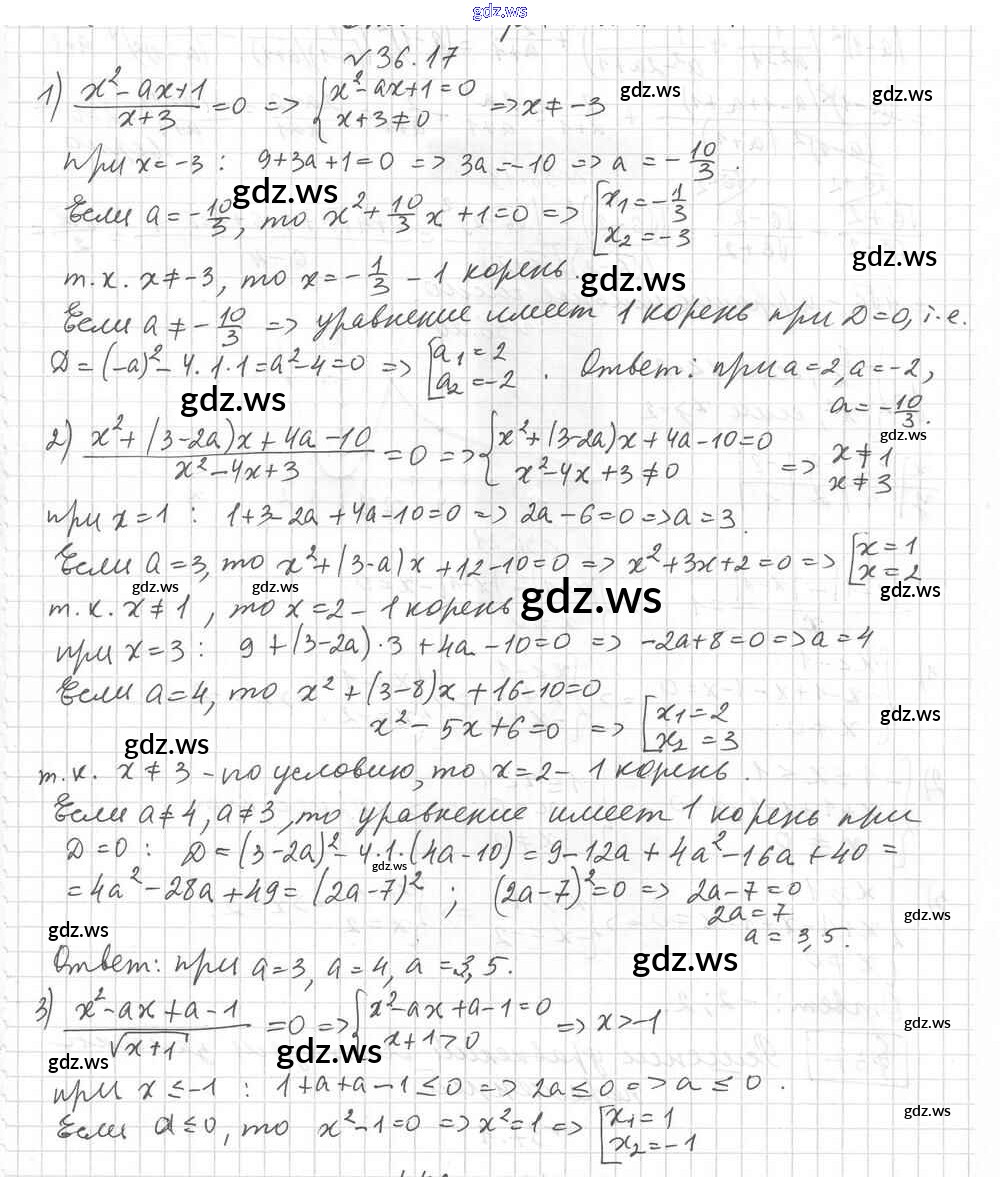 gdz.ws
№36.17
1) (x²-ax+1)/(x+3) =0 => { x²-ax+1=0; x+3≠0 => x≠-3 gdz.ws gdz.ws
при x=-3: 9+3a+1=0 => 3a=-10 => a = -10/3.
Если a=-10/3, то x²+10/3 x+1=0 => [ x₁=-1/3; x₂=-3 gdz.ws
т.к. x≠-3, то x=-1/3 - 1 корень. gdz.ws gdz.ws
Если a≠-10/3 => уравнение имеет 1 корень при D=0, т.е.
D=(-a)²-4·1·1=a²-4=0 => [ a₁=2; a₂=-2. Ответ: при a=2, a=-2,
gdz.ws a=-10/3.
2) (x²+(3-2a)x+4a-10)/(x²-4x+3) =0 => { x²+(3-2a)x+4a-10=0; x²-4x+3≠0 => x≠1 x≠3 gdz.ws
при x=1: 1+3-2a+4a-10=0 => 2a-6=0 => a=3.
Если a=3, то x²+(3-a)x+12-10=0 => x²+3x+2=0 => [ x=1; x=2
gdz.ws gdz.ws gdz.ws gdz.ws
т.к. x≠1, то x=2- 1 корень
при x=3: 9+(3-2a)·3+4a-10=0 => -2a+8=0 => a=4
Если a=4, то x²+(3-8)x+16-10=0
x²-5x+6=0 => [ x₁=2; x₂=3 gdz.ws
gdz.ws
т.к. x≠3 - по условию, то x=2- 1 корень.
Если a≠4, a≠3, то уравнение имеет 1 корень при
D=0: D=(3-2a)²-4·1·(4a-10)=9-12a+4a²-16a+40=
gdz.ws
=4a²-28a+49=(2a-7)²; (2a-7)²=0 => 2a-7=0
2a=7 gdz.ws
gdz.ws a=3,5.
Ответ: при a=3, a=4, a=3,5. gdz.ws
3) (x²-ax+a-1)/√(x+1) =0 => { x²-ax+a-1=0; x+1>0 => x>-1 gdz.ws
gdz.ws gdz.ws
при x≤-1: 1+a+a-1≤0 => 2a≤0 => a≤0.
gdz.ws
Если a≤0, то x²-1=0 => x²=1 => [ x₁=1; x₂=-1